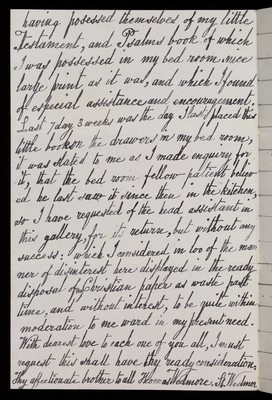 having posessed themselves of my little
Testament, and Psalms book of which
I was possessed in my bed room nice
large print as it was, and which I found
of especial assistance and encouragement.
Last 7day 3 weeks was the day I last placed this
little book on the drawers in my bed room,
it was stated to me as I made enquiry for
it, that the bed room fellow patient believ-
ed he last saw it since then in the kitchen,
so I have requested of the head assistant in
this gallery for its return, but without any
success: which I considered in too of the man
ner of disinterest here displayed in the ready
disposal of Christian paper as waste past
time, and without interest, to be quite within
moderation to me ward in my present need.
With dearest love to each one of you all, I must
request this shall have thy ready consideration,
Thy affectionate brother to all Thomas Wedmore. St. Wedmor